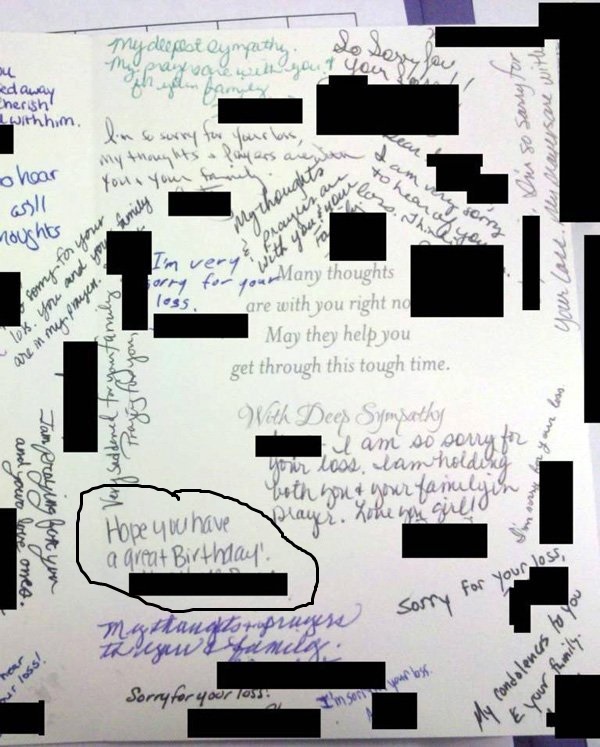 My deepest sympathy.
My prayers are with you &
your family
So Sorry for
your loss!!
ed away
cherish
d with him.
I'm so sorry for your loss,
My thoughts & Prayers are with
You & your family.
I am very sorry
to hear of your
loss.
I'm so sorry for
your loss. My prayers are with
o hear
as I'll
houghts
My thoughts
& prayers are
with you & your
sorry for your
loss. you and your family
are in my prayers.
I'm very
sorry for your
loss.
Many thoughts
are with you right no
May they help you
get through this tough time.
With Deep Sympathy
I am so sorry for
your loss. I am holding
both you & your family in
prayer. Love you girl!
Very saddened for your family
Praying for you,
I am praying for you
and your love ones.
Hope you have
a great Birthday!
I'm sorry for your loss
Sorry for your loss,
My thoughts & prayers
to you & family.
My condolences to you
& your family.
hear
ur loss!
Sorry for your loss!
I'm sorry your loss.